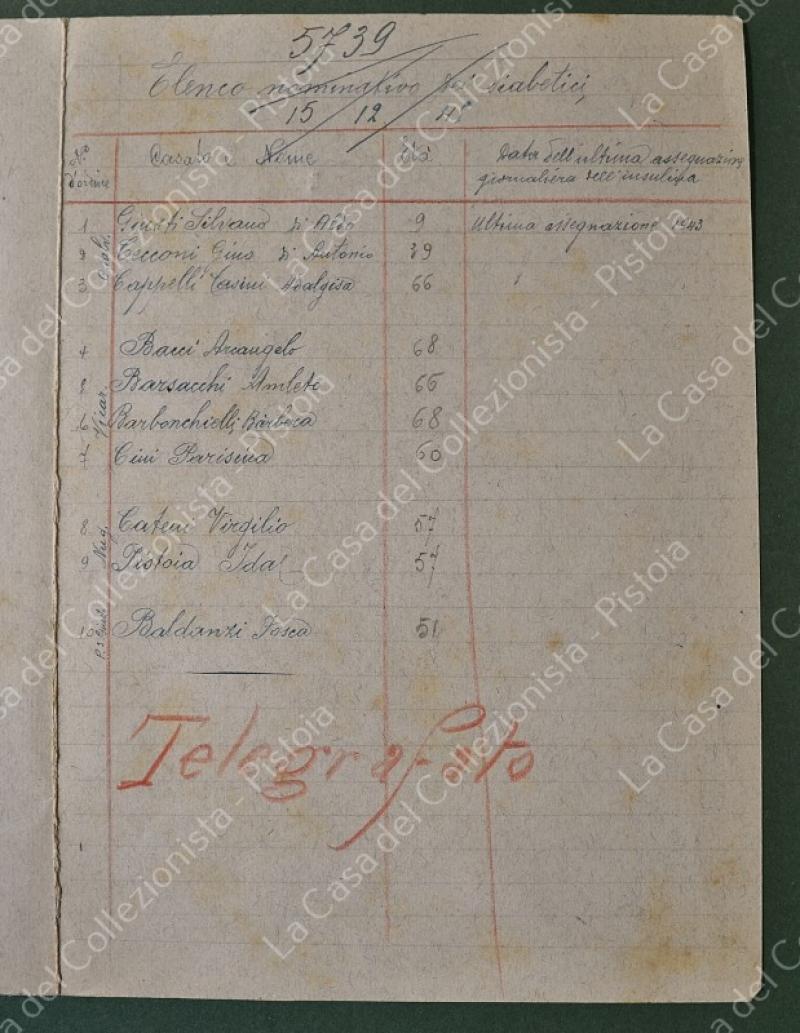 5739
Elenco nominativo dei diabetici
15 12
N.o d'ordine Casato e Nome Età Data dell'ultima assegnazione
giornaliera dell'insulina
1 Giusti Silvano di Aldo 9 Ultima assegnazione 1943
2 Cecconi Gius di Antonio 39
3 Cappelli Casini Adalgisa 66 "
4 Bacci Arcangelo 68
5 Barsacchi Amleto 66
6 Barbonchielli Barbera 68
7 Cini Parisina 60
8 Cateni Virgilio 57
9 Pistoia Ida 57
10 Baldanzi Tosca 51
Telegrafato
La Casa del Collezionista - Pistoia